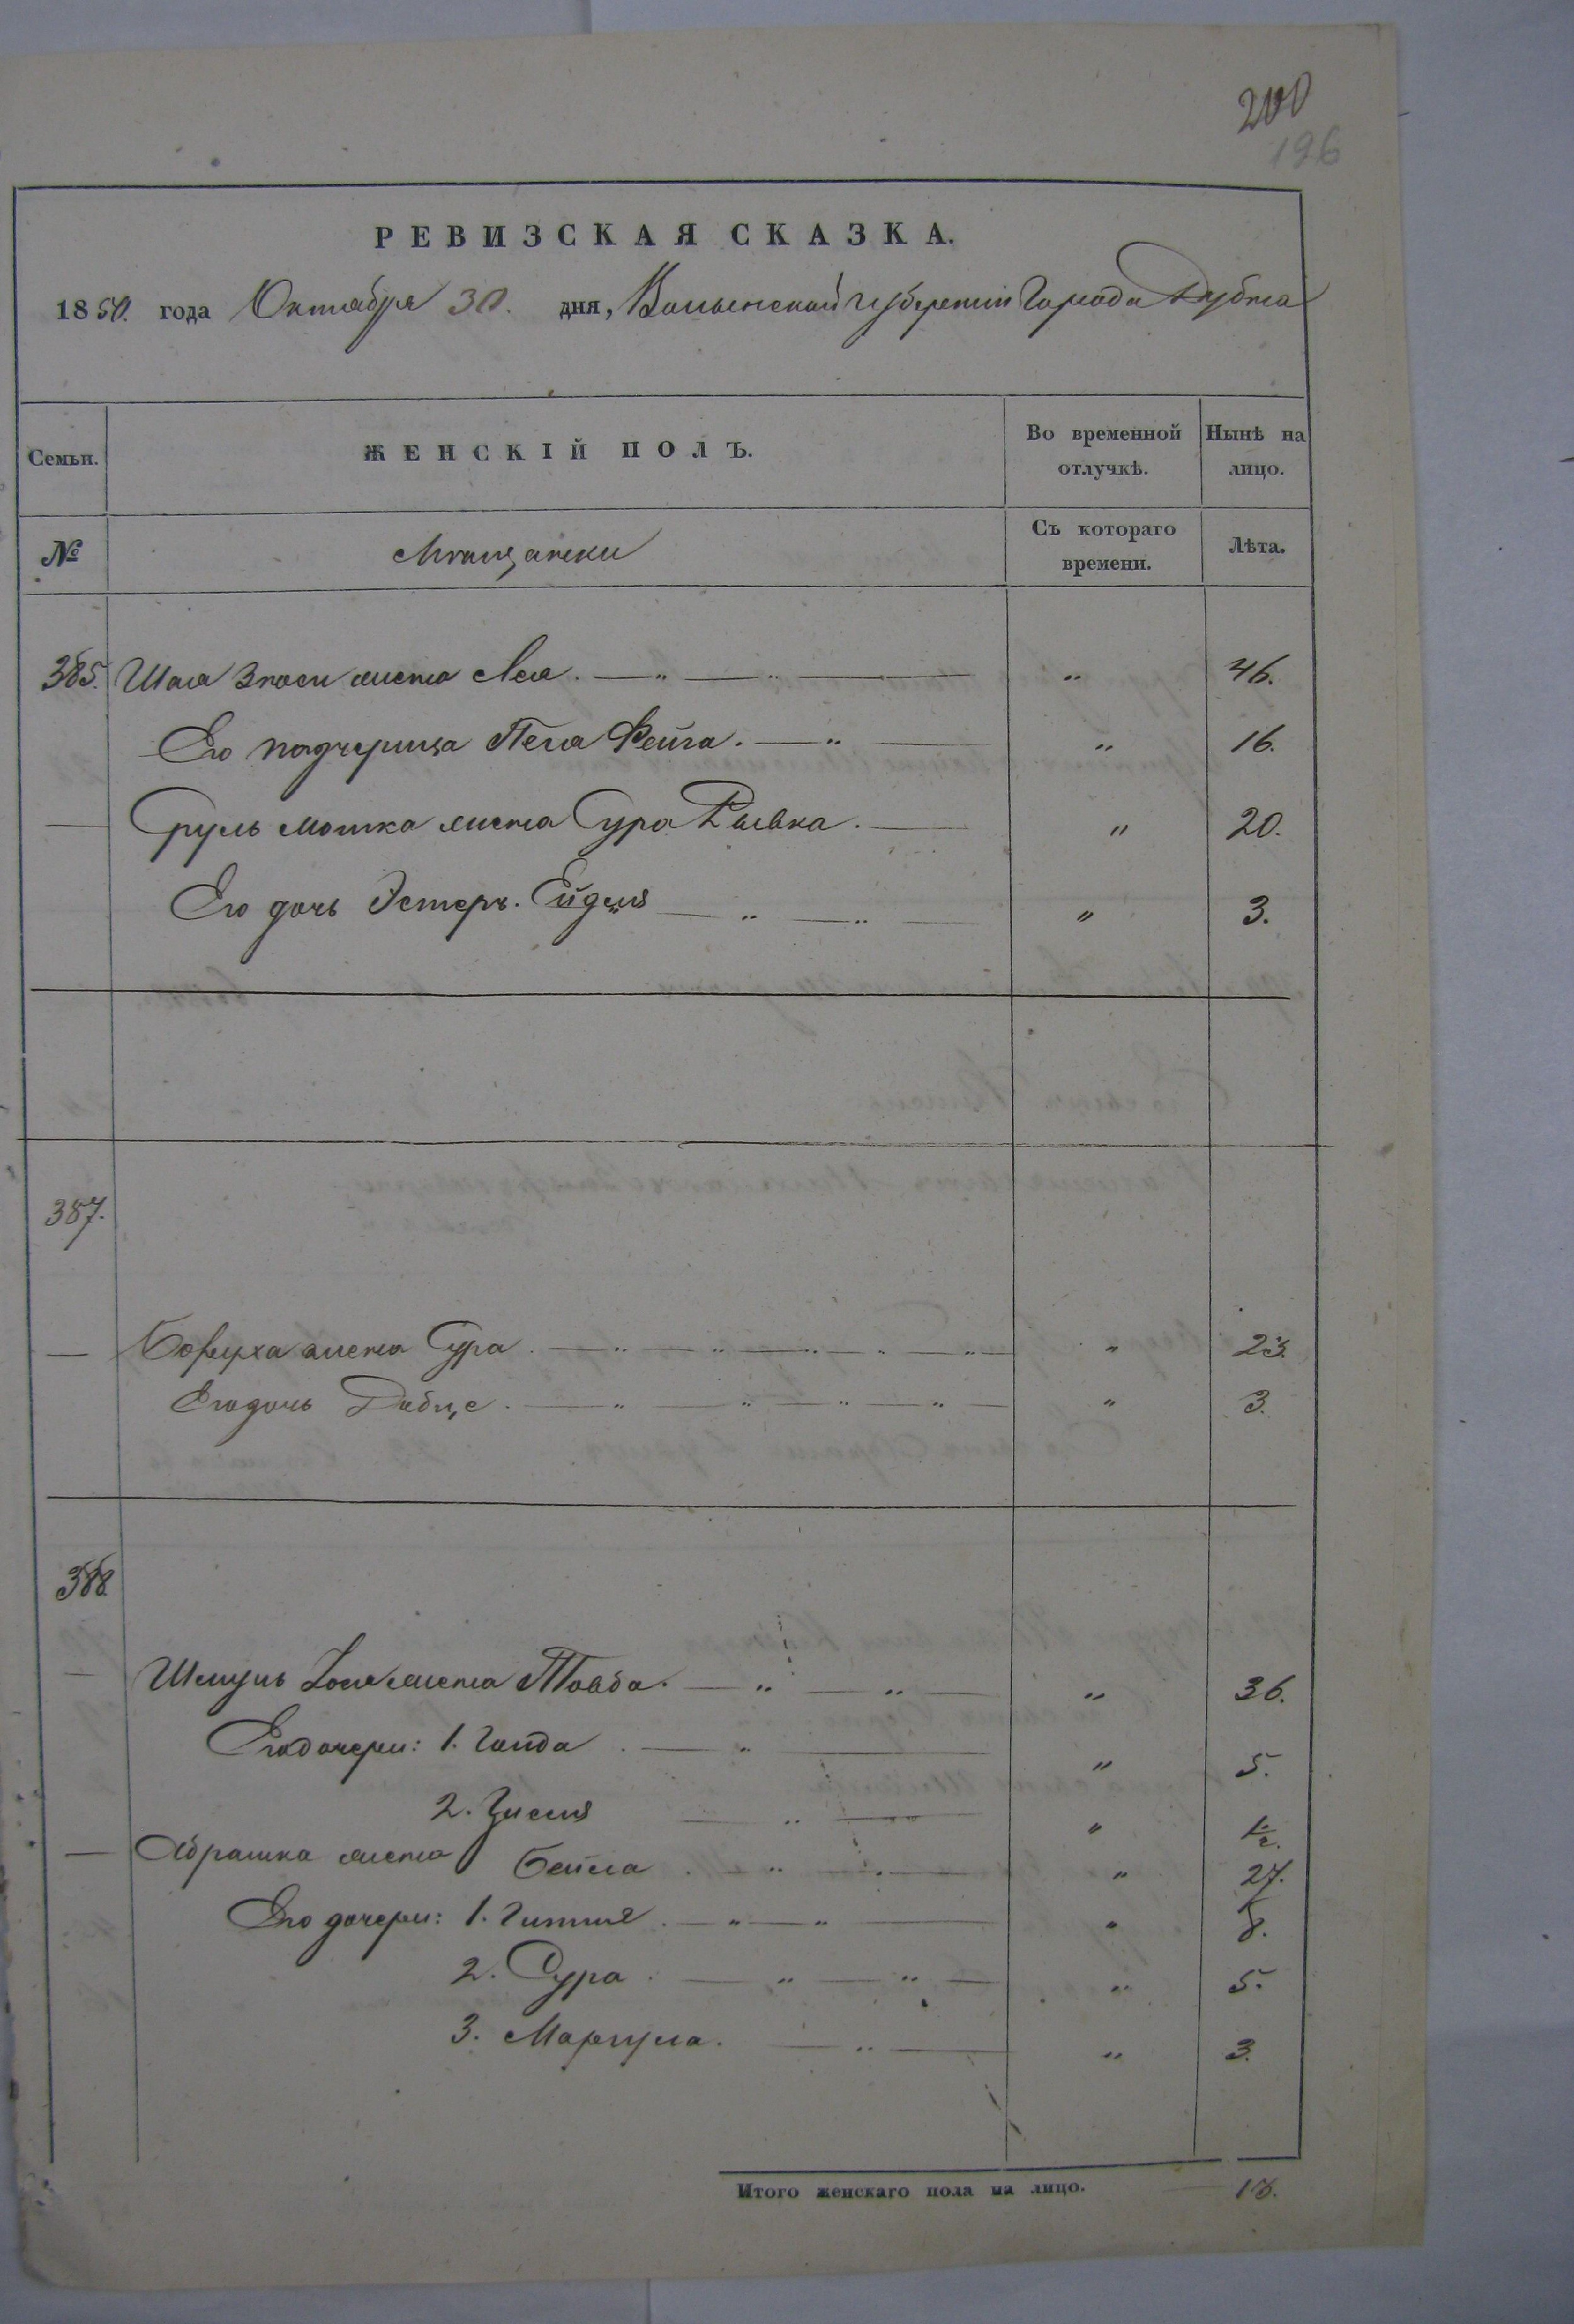 200
196
РЕВИЗСКАЯ СКАЗКА.
1850. года Октября 30. дня, Волынской губернии Города Дубна
Семьи. ЖЕНСКІЙ ПОЛЪ. Во временной отлучкѣ. Нынѣ на лицо.
№ Мещански Съ котораго времени. Лѣта.
385. Шая жена Лея. — „ — „ — „ 46.
Его падчерица Песя Фейга. — „ — „ 16.
— Сруль Мошка жена Сура Рывка. — „ 20.
Его дочь Эстеръ. Ейдля — „ — „ — „ 3.
387.
— Боруха жена Сура. — „ — „ — „ — „ — „ — „ 23.
Его дочь Добце. — „ — „ — „ — „ — „ 3.
388.
— Шмуль жена Товба. — „ — „ — „ 36.
Его дочери: 1. Гинда. — „ — „ 5.
2. Цисля — „ — „ ½.
— Абрашка жена Бейла. — „ — „ — „ 27.
Его дочери: 1. Гитля. — „ — „ — „ 8.
2. Сура. — „ — „ — „ 5.
3. Маргула. — „ — „ 3.
Итого женскаго пола на лицо. — 13.